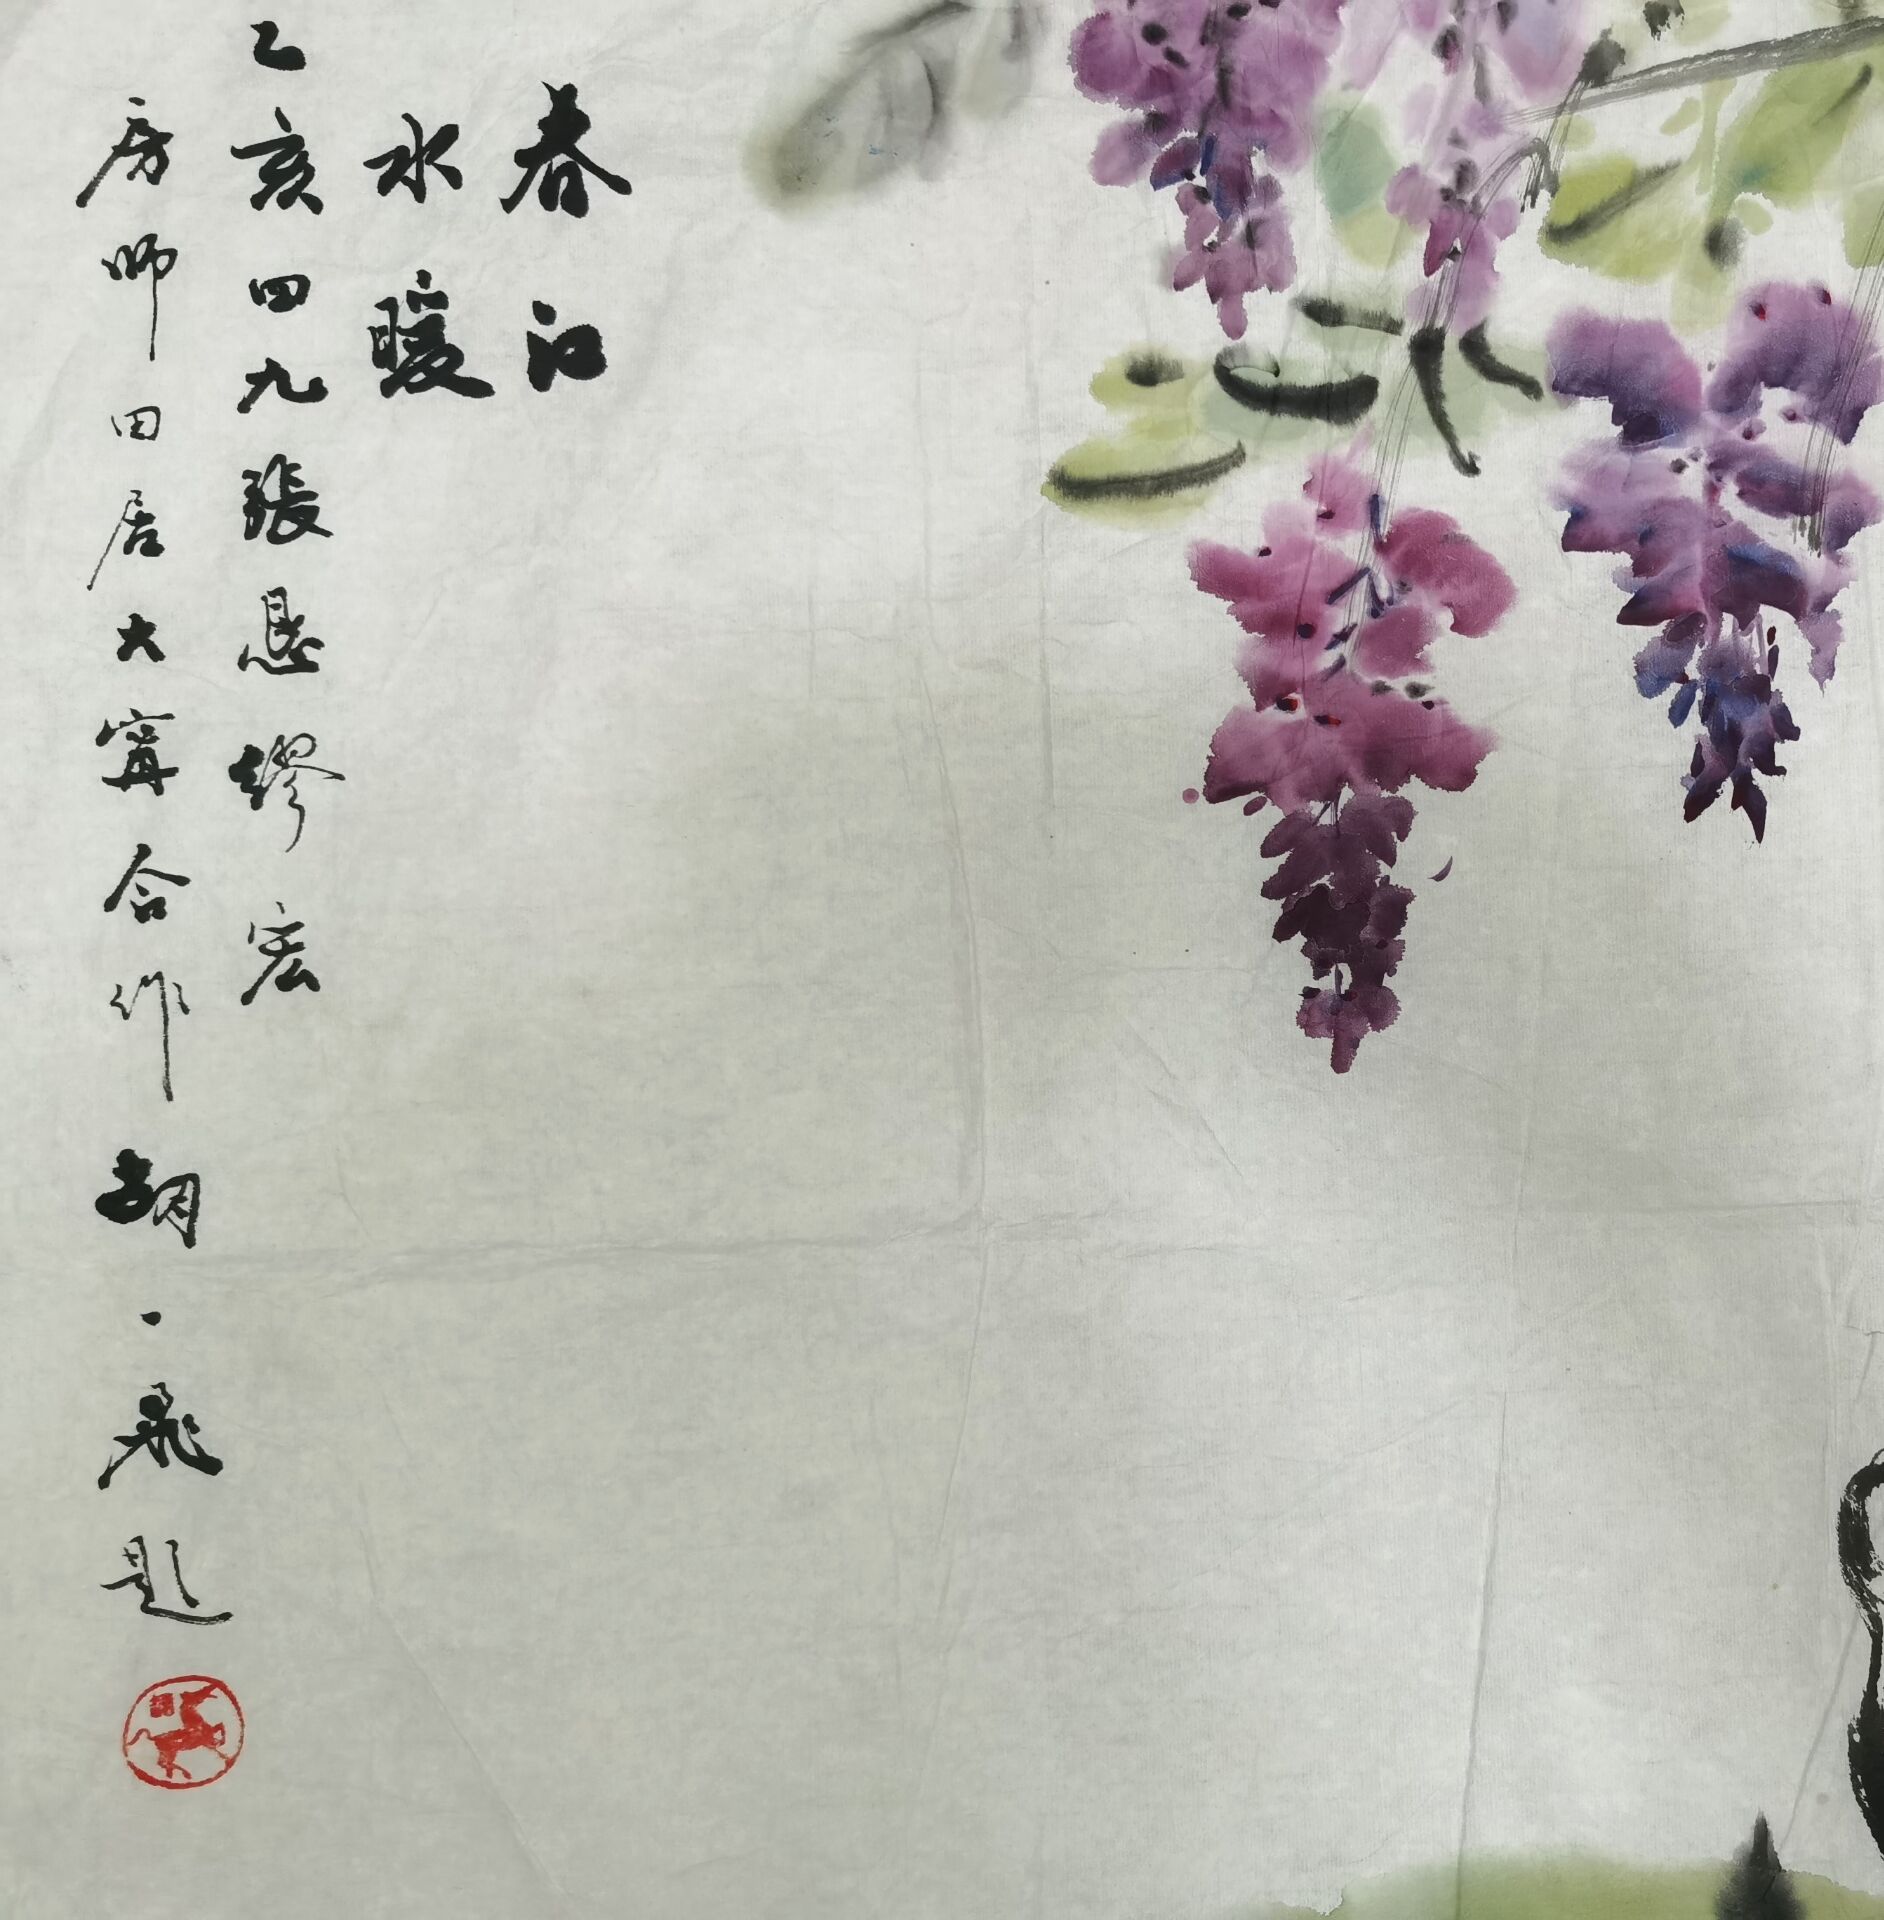 春江
水暖
乙亥四九張思繆宏
房师田居大寗合作胡一飛題